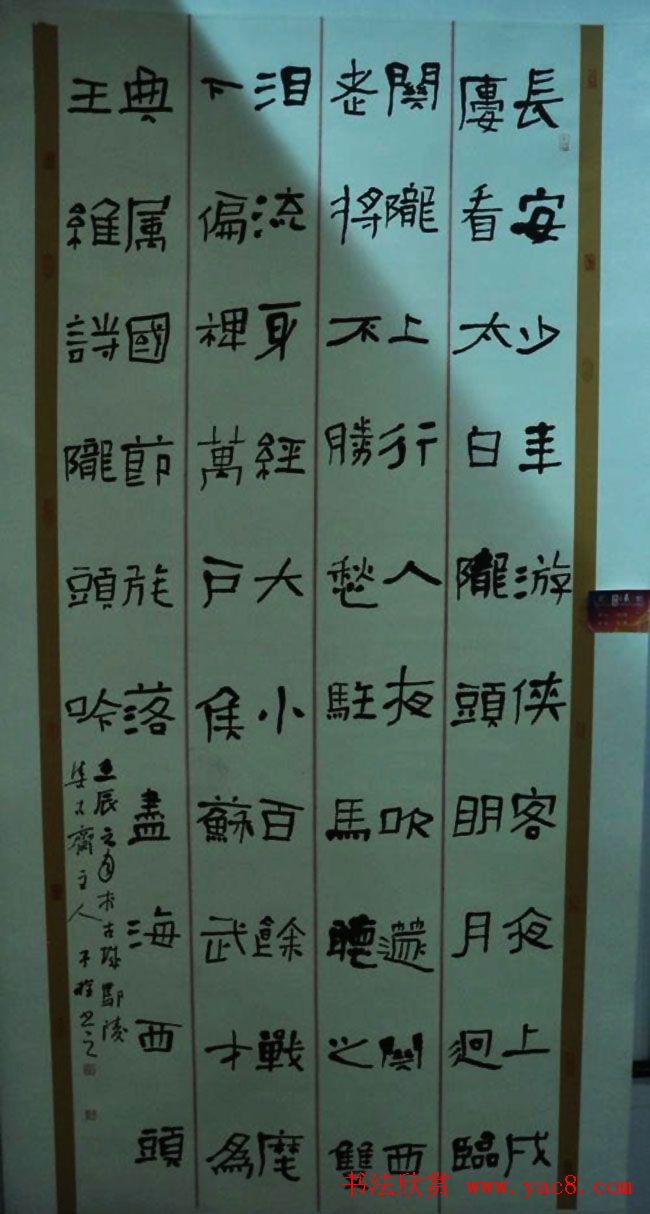 長安少年游侠客夜上戍
廔看太白隴頭明月迥臨
關隴上行人夜吹篴關西
老將不勝愁駐馬聽之雙
泪流身經大小百餘戰麾
下偏裨萬户侯蘇武才為
典属國節旄落盡海西頭
王維詩隴頭吟
壬辰之於古城鄢陵
集古齋主人书之
书法欣赏 www.yac8.com